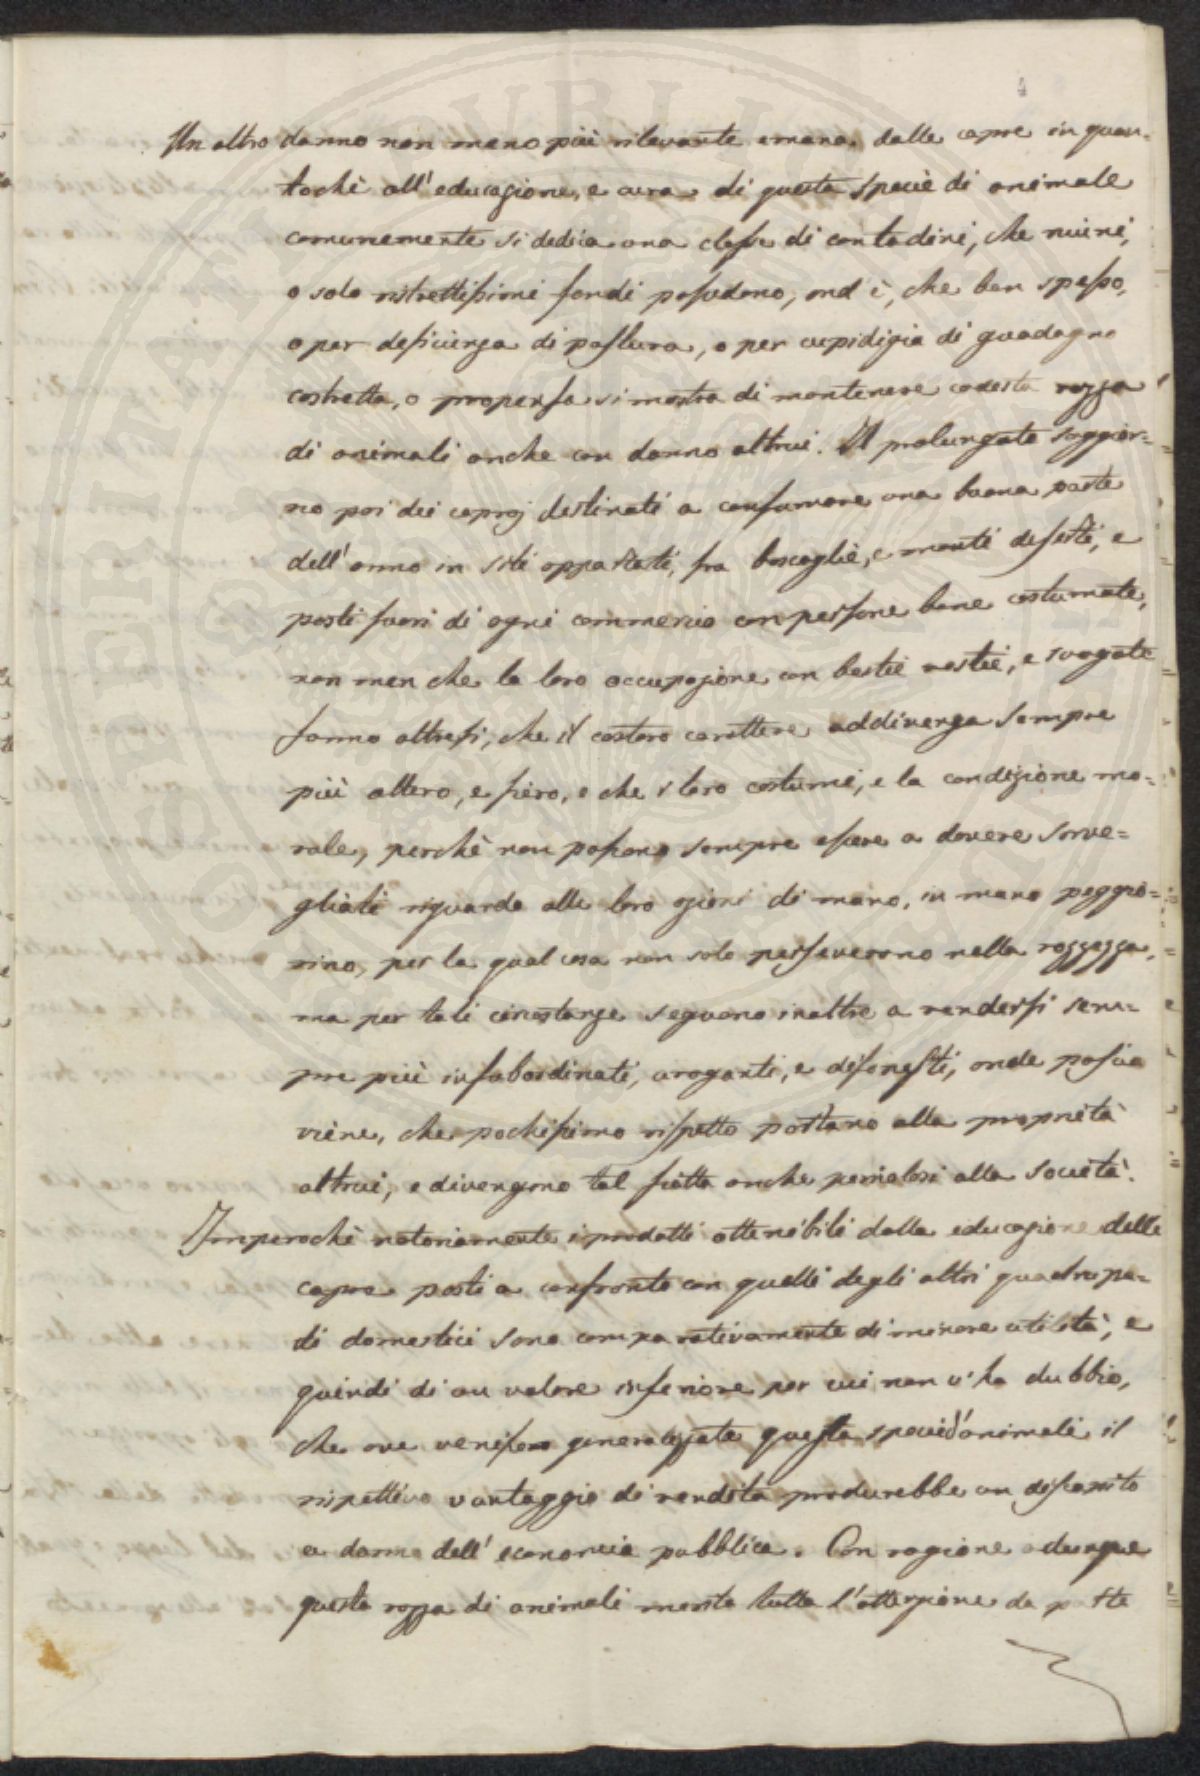 Un altro danno non meno più rilevante emana dalle capre in quan-
tochè all'educazione, e cura di questa specie di animale
comunemente si dedica una classe di contadini, che niuni,
o solo ristrettissimi fondi possedono, ond'è, che ben spesso,
o per deficienza di pastura, o per cupidigia di guadagno
costretta, o propensa si mostra di mantenere codesta razza
di animali anche con danno altrui. Il prolungato soggior=
no poi dei capraj destinati a consumare una buona parte
dell'anno in siti appartati, fra boscaglie, e monti deserti, e
posti fuori di ogni commercio con persone bene costumate,
non men che la loro occupazione con bestie rustie, e svagate
fanno altresì, che il costoro carattere addivenga sempre
più altero, e fiero, e che i loro costumi, e la condizione mo=
rale, perchè non possono sempre essere a dovere sorve=
gliati riguardo alle loro azioni di mano, in mano peggio=
rino, per la qual cosa non solo perseverano nella rozzezza,
ma per tali circostanze seguono inoltre a rendersi sem=
pre più insubordinati, aroganti, e disonesti, onde poscia
viene, che pochissimo rispetto portano alla proprietà
altrui, e divengono tal fiatta anche perniciosi alla società.
Imperochè notoriamente i prodotti ottenibili dalla educazione delle
capre posti a confronto con quelli degli altri quadrupe=
di domestici sono comparativamente di minore utilità, e
quindi di un valore inferiore per cui non v'ha dubbio,
che ove venisse generalizzata questa specie d'animali il
rispettivo vantaggio di rendita produrebbe un discapito
a danno dell'economia pubblica. Con ragione adunque
questa razza di animali merita tutta l'attenzione da parte